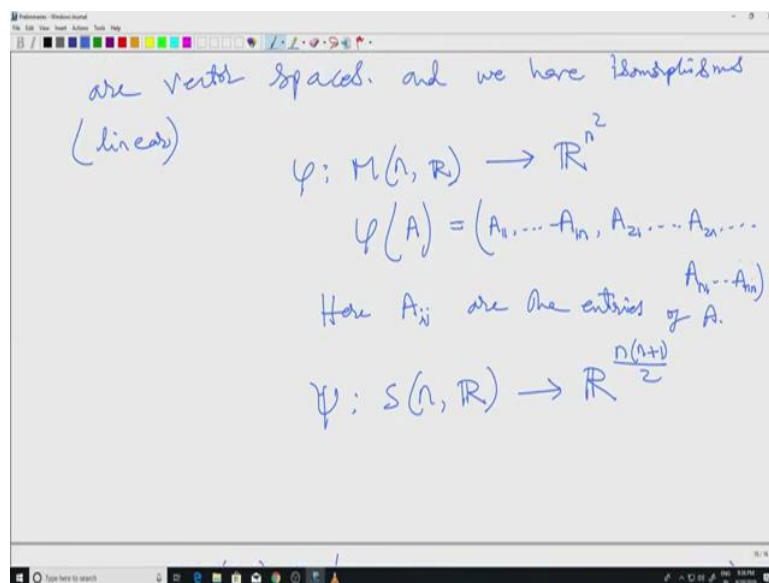 Preliminaries - Windows Journal
File Edit View Insert Actions Tools Help
are vector spaces. and we have isomorphisms
(linear)
φ: M(n, ℝ) → ℝ^{n^2}
φ(A) = (A_{11}, .... A_{1n}, A_{21}, .... A_{2n}, ....
A_{n1} ... A_{nn})
Here A_{ij} are the entries of A.
ψ: S(n, ℝ) → ℝ^{\frac{n(n+1)}{2}}
Type here to search